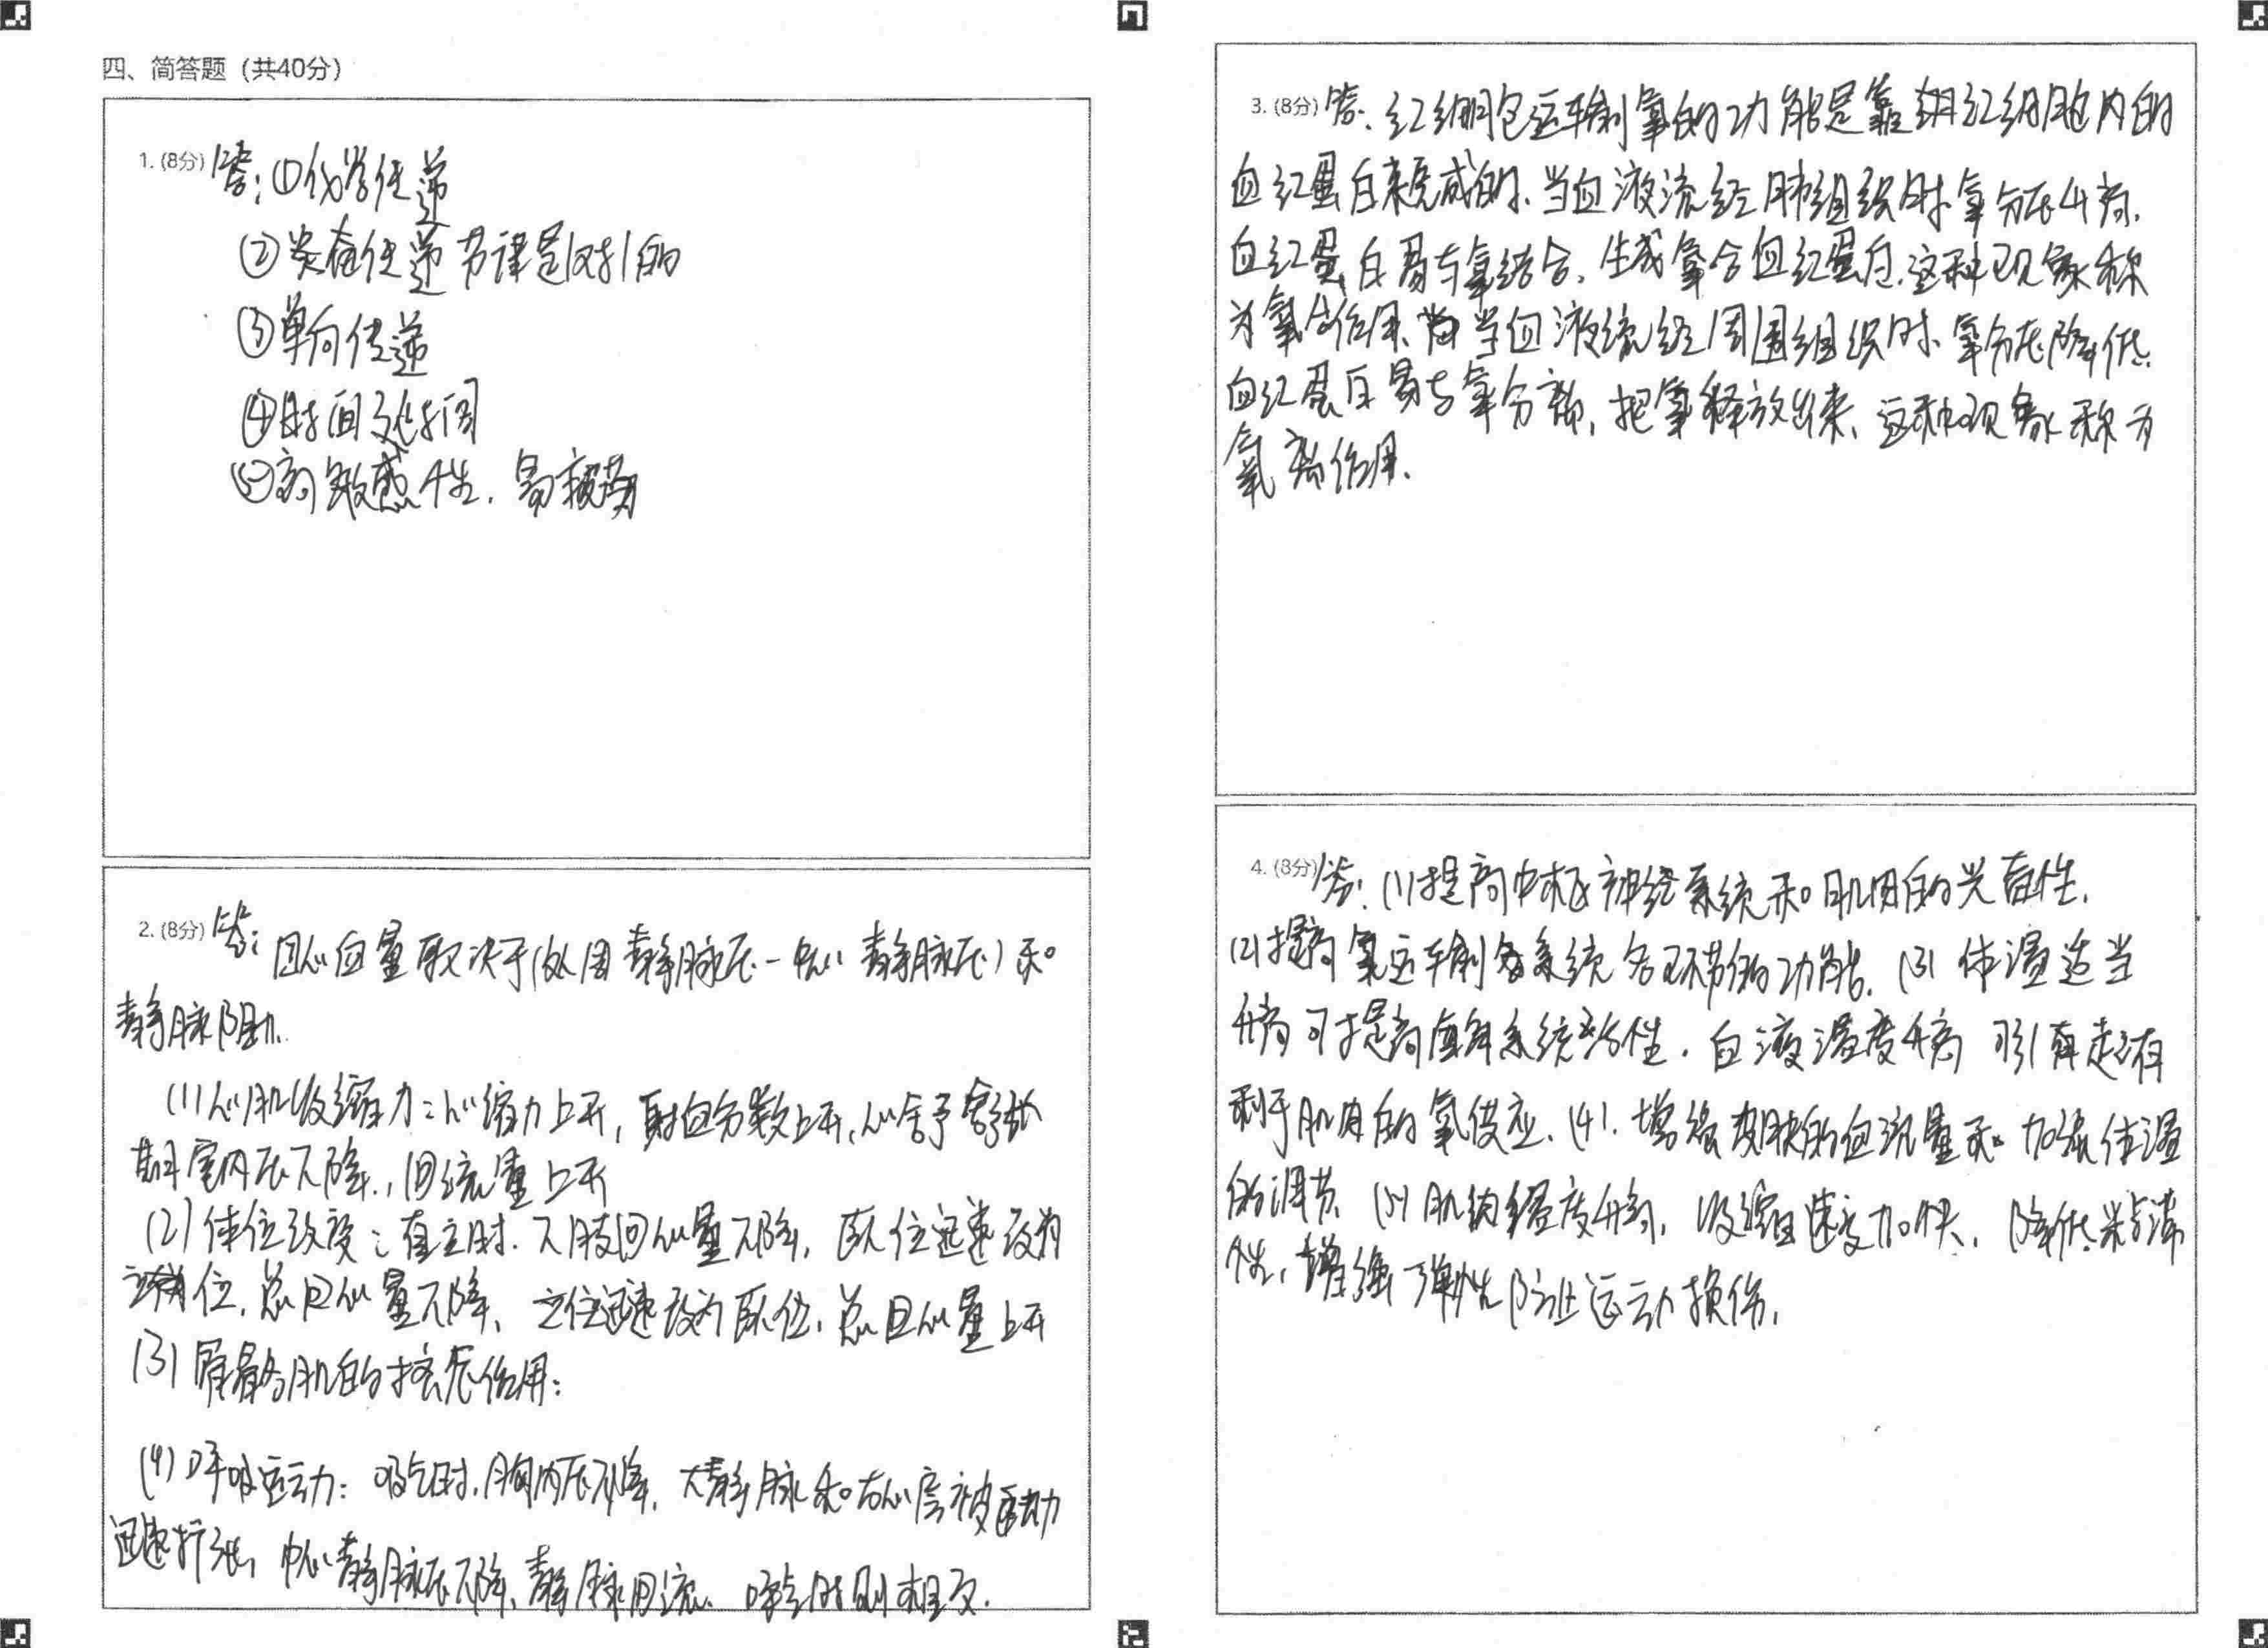 四、简答题（共40分）
1. (8分) 答：①化学传递
②兴奋传递节律是1对1的
③单向传递
④时间延搁
⑤高敏感性，易疲劳
2. (8分) 答：
回心血量取决于(外周静脉压－中心静脉压)和
静脉阻力
(1)心肌收缩力：心缩力上升，射血分数上升，心舍予舒张
期室内压下降，回流量上升
(2)体位改变：直立时、下肢回心量下降，卧位迅速改为
立位，总回心量下降、立位迅速改为卧位，总回心量上升
(3)骨骼肌的挤压作用：
(4)呼吸运动：吸气时，胸内压下降，大静脉和右心房被动
迅速扩张，中心静脉压下降、静脉回流、呼气时则相反．
3. (8分) 答：红细胞运输氧的功能是靠红细胞内的
血红蛋白来完成的、当血液流经肺组织时氧分压升高，
血红蛋白易与氧结合，生成氧合血红蛋白．这种现象称
为氧合作用、当血液流经周围组织时、氧分压降低．
血红蛋白易与氧分离，把氧释放出来、这种现象称为
氧离作用．
4. (8分) 答：(1)提高中枢神经系统和肌肉的兴奋性．
(2)提高氧运输系统各环节的功能．(3)体温适当
升高可提高酶系统活性．血液温度升高 可 有
利于肌肉的氧供应、(4)．增强皮肤的血流量和加强体温
的调节、(5)肌肉温度升高，收缩速度加快，降低粘滞
性，增强弹性防止运动损伤．